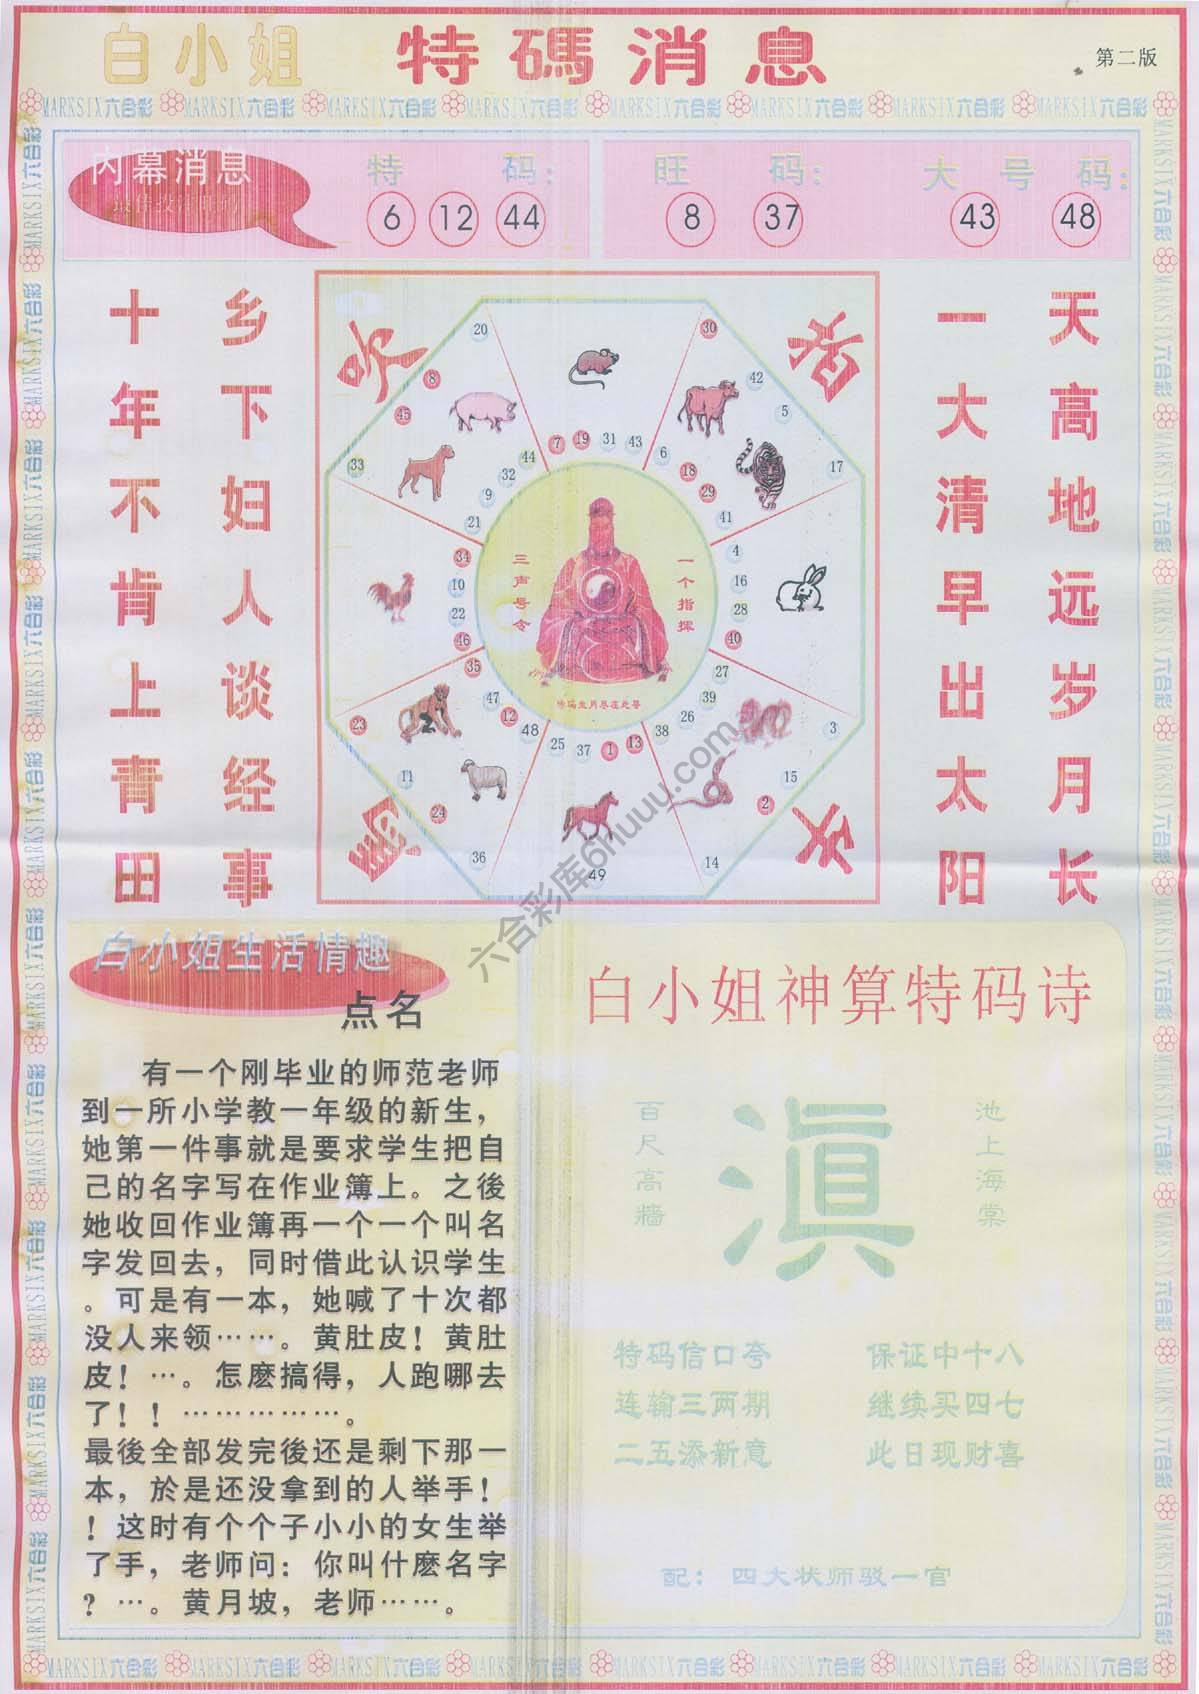 白小姐 特碼消息
第二版
MARKSIX六合彩 MARKSIX六合彩 MARKSIX六合彩 MARKSIX六合彩 MARKSIX六合彩 MARKSIX六合彩 MARKSIX六合彩 MARKSIX六合彩
内幕消息
特 码:
6 12 44
旺 码:
8 37
大 号 码:
43 48
天高地远岁月长
一大清早出太阳
乡下妇人谈经事
十年不肯上青田
20 30
8 42
45 5
33 44 7 19 31 43 6 17
32 18
9 29
21 41
34 4
10 16
22 28
46 40
35 27
47 39
23 12 26 3
48 25 37 1 13 38
11 15
24 2
36 49 14
一个指挥
三声号令
白小姐生活情趣
点名
有一个刚毕业的师范老师
到一所小学教一年级的新生，
她第一件事就是要求学生把自
己的名字写在作业簿上。之後
她收回作业簿再一个一个叫名
字发回去，同时借此认识学生
。可是有一本，她喊了十次都
没人来领……。黄肚皮！黄肚
皮！…。怎麽搞得，人跑哪去
了！！……………。
最後全部发完後还是剩下那一
本，於是还没拿到的人举手！
！这时有个个子小小的女生举
了手，老师问：你叫什麽名字
？…。黄月坡，老师……。
白小姐神算特码诗
池上海棠
滇
百尺高牆
特码信口夸 保证中十八
连输三两期 继续买四七
二五添新意 此日现财喜
配：四大状师驳一官
六合彩库6huuu.com
MARKSIX六合彩 MARKSIX六合彩 MARKSIX六合彩 MARKSIX六合彩 MARKSIX六合彩 MARKSIX六合彩 MARKSIX六合彩 MARKSIX六合彩